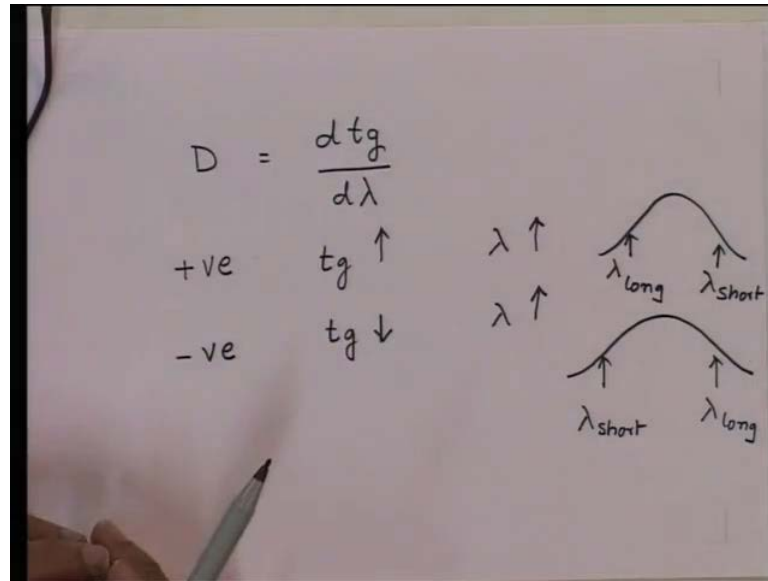 D = dtg / dλ
+ve tg ↑ λ ↑
λlong λshort
-ve tg ↓ λ ↑
λshort λlong